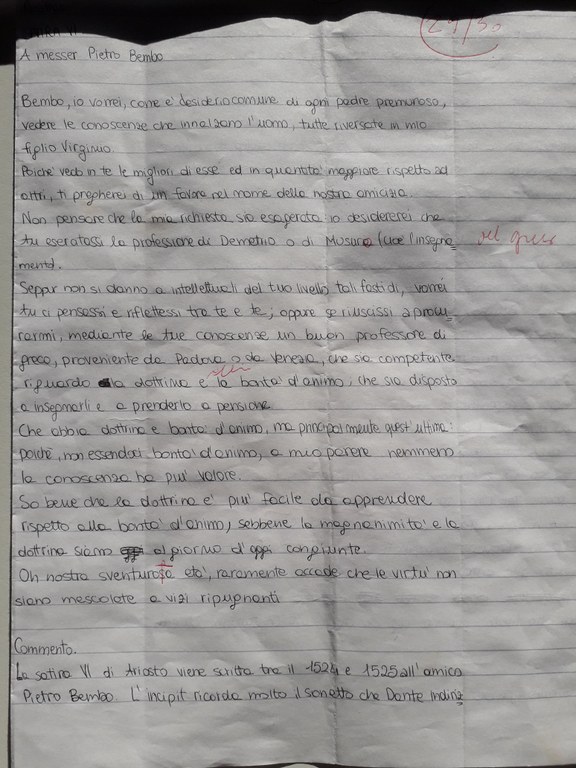 A messer Pietro Bembo
Bembo, io vorrei, come e' desiderio comune di ogni padre premuroso,
vedere le conoscenze che innalzano l'uomo, tutte riversate in mio
figlio Virginio.
Poiché vedo in te le migliori di esse ed in quantita' maggiore rispetto ad
altri, ti pregherei di un favore nel nome della nostra amicizia.
Non pensare che la mia richiesta sia esagerata io desidererei che
tu esercitassi la professione di Demetrio o di Musuro (cioè l'insegna
mento). del greco
Seppur non si danno a intellettuali del tuo livello tali fastidi, vorrei
tu ci pensassi e riflettessi tra te e te; oppure se riuscissi a procu
rarmi, mediante le tue conoscenze un buon professore di
greco, proveniente da Padova o da Venezia, che sia competente
riguardo la dottrina e la bonta' d'animo; che sia disposto
a insegnarli e a prenderlo a pensione.
Che abbia dottrina e bonta' d'animo, ma principalmente quest'ultima:
poiché, non essendoci bonta' d'animo, a mio parere nemmeno
la conoscenza ha piu' valore.
So bene che la dottrina e' piu' facile da apprendere
rispetto alla bonta' d'animo, sebbene la magnanimita' e la
dottrina siano al giorno d'oggi congiunte.
Oh nostra sventurosa eta', raramente accade che le virtu' non
siano mescolate a vizi ripugnanti
Commento.
La satira VI di Ariosto viene scritta tra il 1524 e 1525 all'amico
Pietro Bembo. L'incipit ricorda molto il sonetto che Dante indiriz